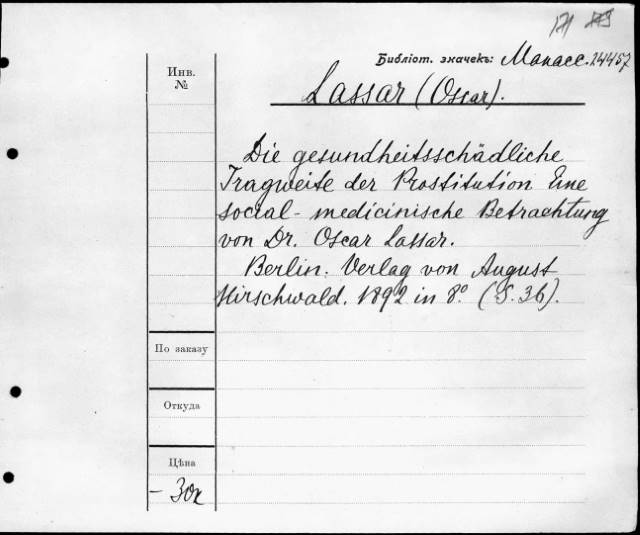 171
Библіот. значекъ: Манасс. 24457
Инв.
№
Lassar (Oscar).
Die gesundheitsschädliche
Tragweite der Prostitution. Eine
social-medicinische Betrachtung
von Dr. Oscar Lassar.
Berlin. Verlag von August
Hirschwald. 1892 in 8° (S. 36).
По заказу
Откуда
Цѣна
- 30к